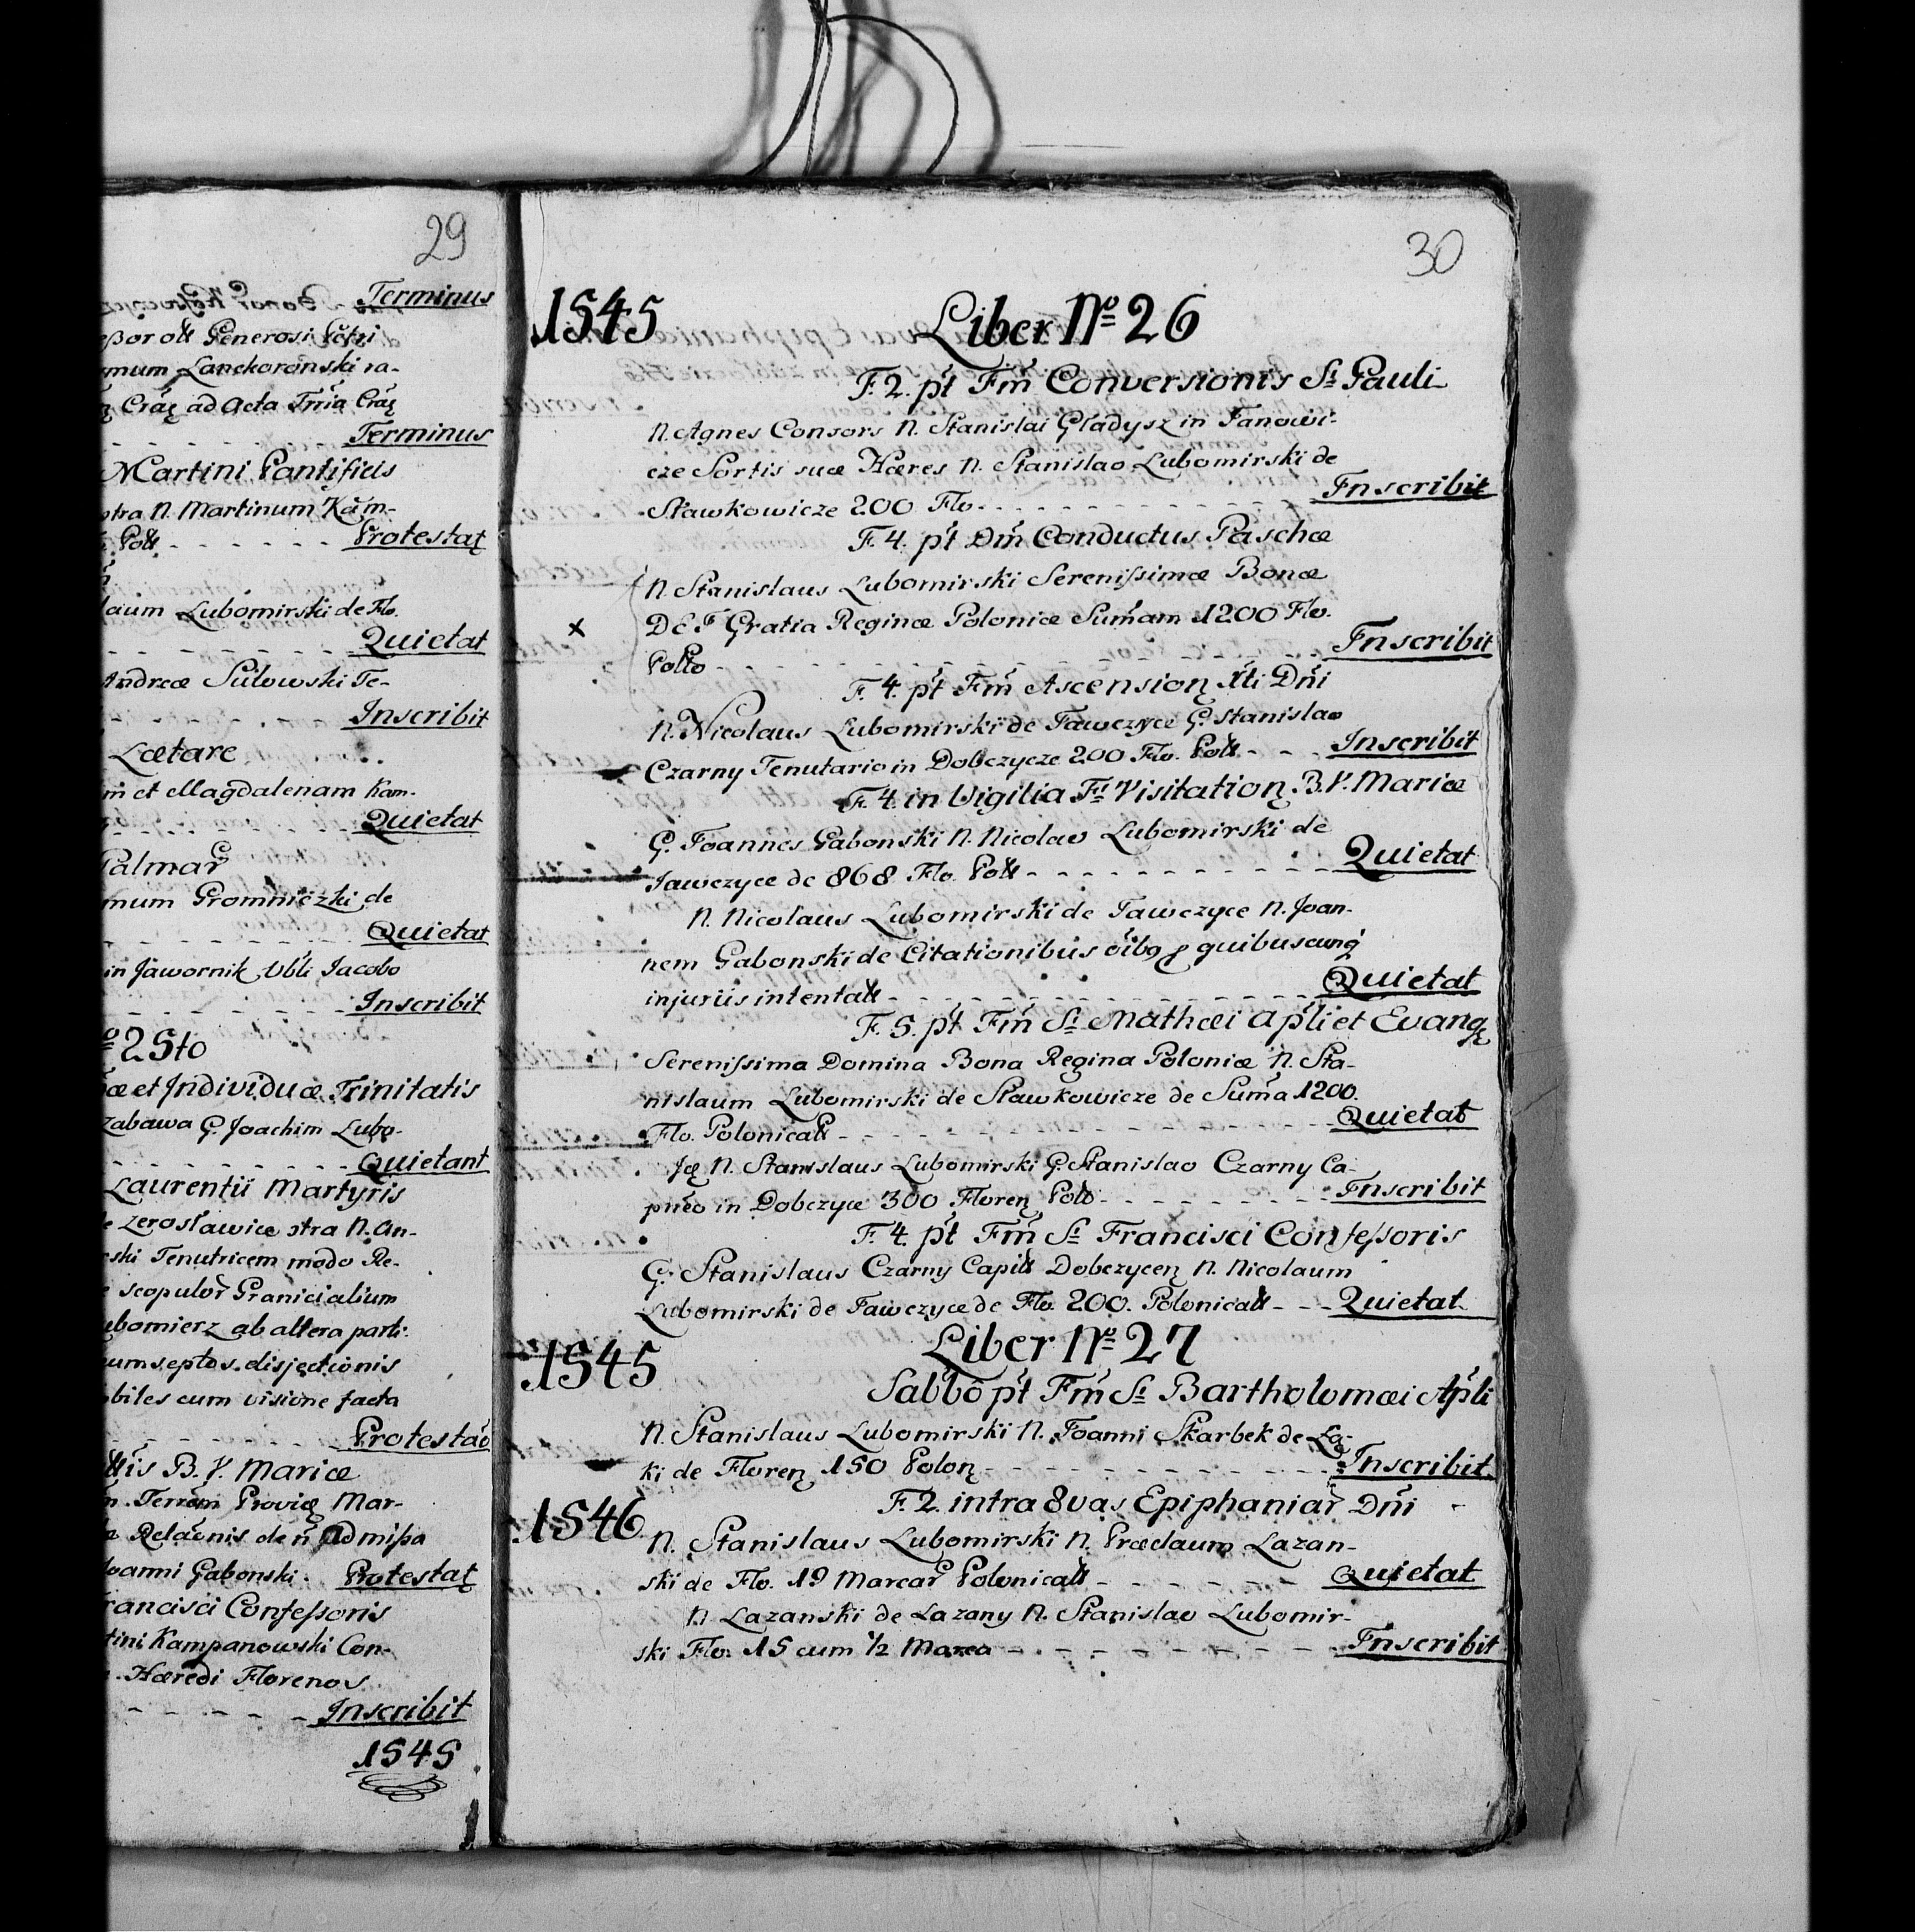 29
Terminus
ßor olt Generosi Petri
mum Lanckoronski ra-
Crac ad Acta Trria Crac
Terminus
Martini Pontificis
ctra N. Martinum Kam-
Poll - - - - - - Protestat
laum Lubomirski de Flo.
- - - - - - Quietat
Andreæ Sulowski Te-
- - - - Inscribit
Lætare
m et Magdalenam Kam-
- - - - - - Quietat
Palmar
mum Gromniczki de
- - - - - - Quietat
in Jawornik Ubli Jacobo
- - - - - Inscribit
25to
æ et Individuæ Trinitatis
Zabawa G. Joachim Lubo-
- - - - - - Quietant
Laurentii Martyris
Zerosławice ctra N. An-
rski Tenutricem modo Re-
scopulor Granicialium
ubomierz ab altera parti:
cumseptos disjectionis
biles cum visione facta
- - - - - - Protestao
ttis B. V. Mariæ
Terrem Provię Mar-
Relaonis de n̄ Admißa
Joanni Gabonski. Protestat
rancisci Confeßoris
tini Kampanowski Con-
Hæredi Florenos
- - - - - Inscribit
1545
30
1545 Liber No 26
F. 2. pt Fm Conversionis St Pauli
N. Agnes Consors N. Stanislai Gładysz in Janowi-
cze Sortis suæ Hæres N. Stanislao Lubomirski de
Sławkowicze 200 Flo. - - - - - - - Inscribit
F. 4. pt Dm Conductus Paschæ
N Stanislaus Lubomirski Serenißimæ Bonæ
x DEI Gratia Reginæ Poloniæ Sumam 1200 Flo.
Pollo - - - - - - - - - - Inscribit
F. 4. pt Fm Ascensionę Xti Dni
N. Nicolaus Lubomirski de Jawczyce G. Stanislao
Czarny Tenutario in Dobczyce 200 Flo. Poll - - - Inscribit
F. 4. in Vigilia Fi Visitationę B. V. Mariæ
G. Joannes Gabonski N. Nicolao Lubomirski de
Jawczyce de 868 Flo. Poll - - - - - - - - Quietat
N. Nicolaus Lubomirski de Jawczyce N. Joan-
nem Gabonski de Citationibus oibq p quibuscunq
injuriis intentatt - - - - - - - - - - Quietat
F. 5. pt Fm St Mathæi Apli et Evangę
Serenißima Domina Bona Regina Poloniæ N. Sta-
nislaum Lubomirski de Sławkowicze de Suma 1200.
Flo. Polonicall - - - - - - - - - - Quietat
Ję N. Stanislaus Lubomirski G. Stanislao Czarny Ca-
pneo in Dobczyce 300 Florenę Polo - - - - - Inscribit
F. 4. pt Fm St Francisci Confeßoris
G. Stanislaus Czarny Capitt Dobczycenę N. Nicolaum
Lubomirski de Jawczyce de Flo. 200. Polonicall - - - Quietat
1545 Liber No 27
Sabbo pt Fm St Bartholomæi Apli
N. Stanislaus Lubomirski N. Joanni Skarbek de Łą-
ki de Florenę 150 Polonę - - - - - - - - Inscribit
F. 2. intra 8vas Epiphaniar Dni
1546 N. Stanislaus Lubomirski N. Præclaum Lazan-
ski de Flo. 19 Marcar Polonicall - - - - - - Quietat
N Lazanski de Lazany N. Stanislao Lubomir-
ski Flo. 15 cum 1/2 Marca - - - - - - - - Inscribit